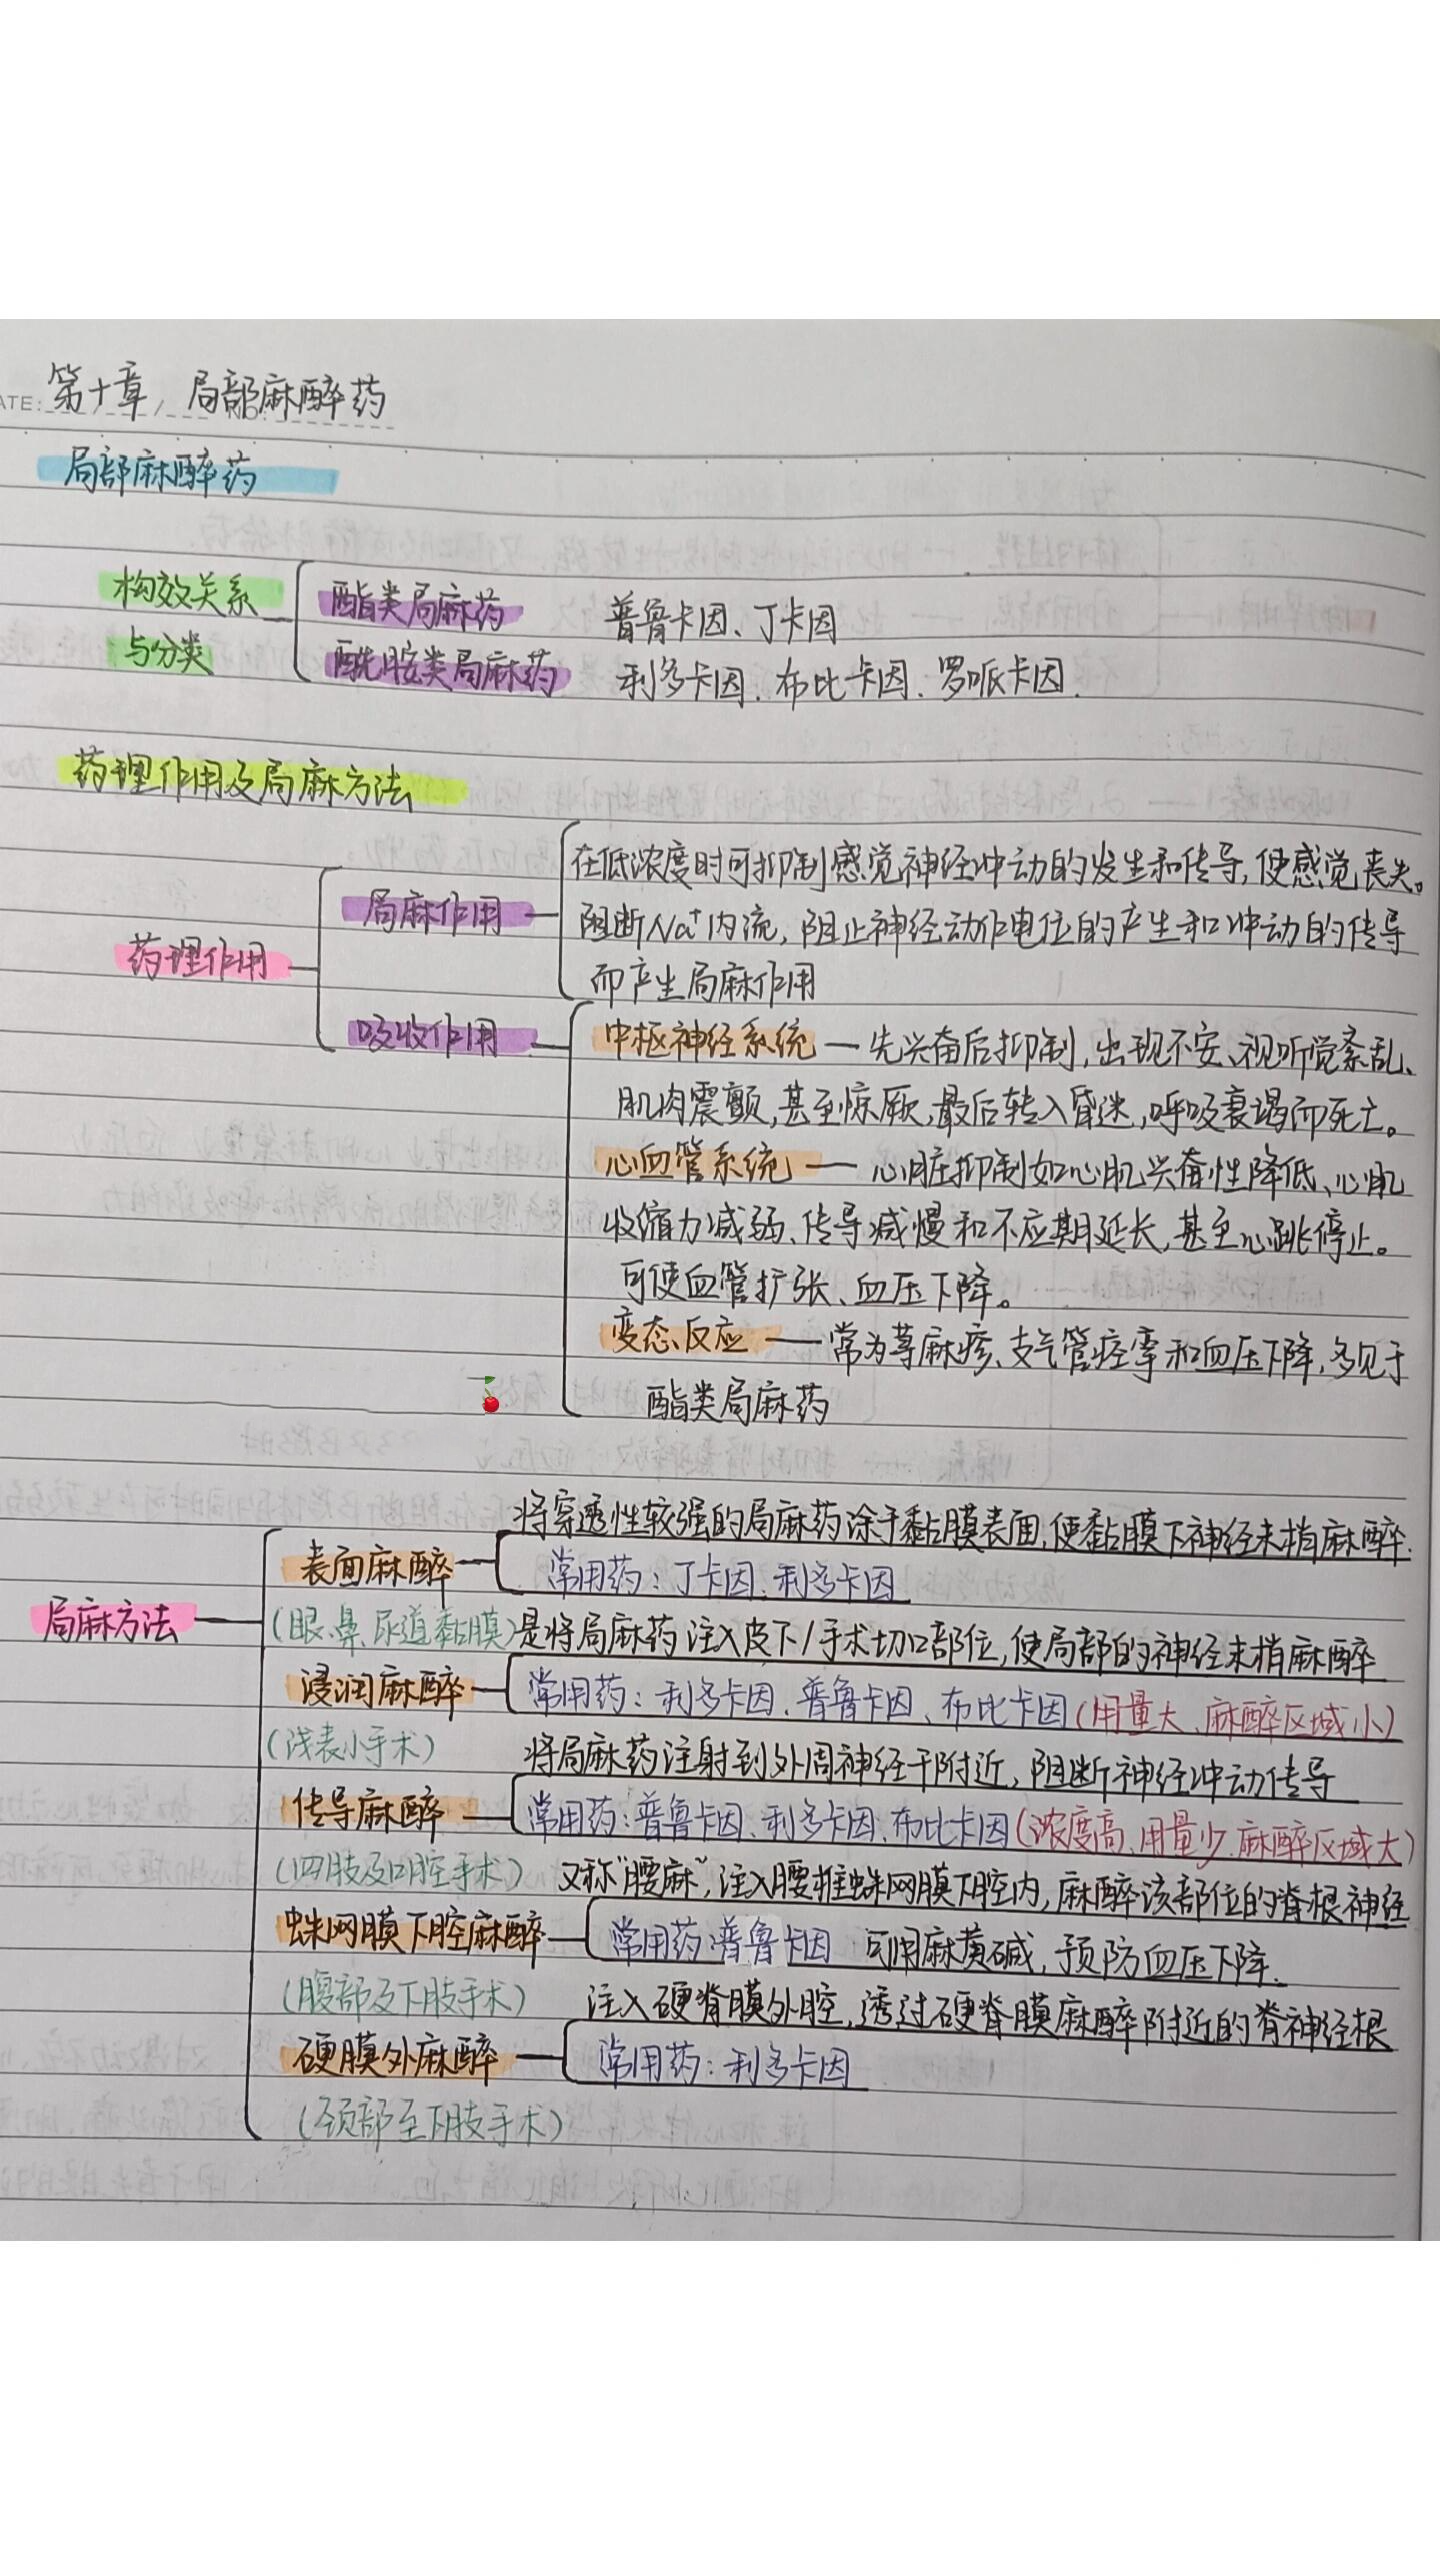 第十章 局部麻醉药
ATE:
局部麻醉药
构效关系
与分类
酯类局麻药 普鲁卡因、丁卡因
酰胺类局麻药 利多卡因、布比卡因、罗哌卡因.
药理作用及局麻方法
药理作用
局麻作用
在低浓度时可抑制感觉神经冲动的发生和传导,使感觉丧失。
阻断Na⁺内流,阻止神经动作电位的产生和冲动的传导
而产生局麻作用
吸收作用
中枢神经系统—先兴奋后抑制,出现不安、视听觉紊乱、
肌肉震颤,甚至惊厥,最后转入昏迷,呼吸衰竭而死亡。
心血管系统—心脏抑制如心肌兴奋性降低、心肌
收缩力减弱、传导减慢和不应期延长,甚至心跳停止。
可使血管扩张、血压下降。
变态反应—常为荨麻疹、支气管痉挛和血压下降,多见于
酯类局麻药
局麻方法
将穿透性较强的局麻药涂于黏膜表面,使黏膜下神经末梢麻醉.
表面麻醉 常用药:丁卡因、利多卡因
(眼、鼻、尿道黏膜) 是将局麻药注入皮下/手术切口部位,使局部的神经末梢麻醉
浸润麻醉 常用药:利多卡因、普鲁卡因、布比卡因(用量大、麻醉区域小)
(浅表小手术) 将局麻药注射到外周神经干附近,阻断神经冲动传导
传导麻醉 常用药:普鲁卡因、利多卡因、布比卡因(浓度高、用量少、麻醉区域大)
(四肢及口腔手术) 又称"腰麻",注入腰椎蛛网膜下腔内,麻醉该部位的脊根神经
蛛网膜下腔麻醉 常用药:普鲁卡因 可用麻黄碱,预防血压下降.
(腹部及下肢手术) 注入硬脊膜外腔,透过硬脊膜麻醉附近的脊神经根
硬膜外麻醉 常用药:利多卡因
(颈部至下肢手术)